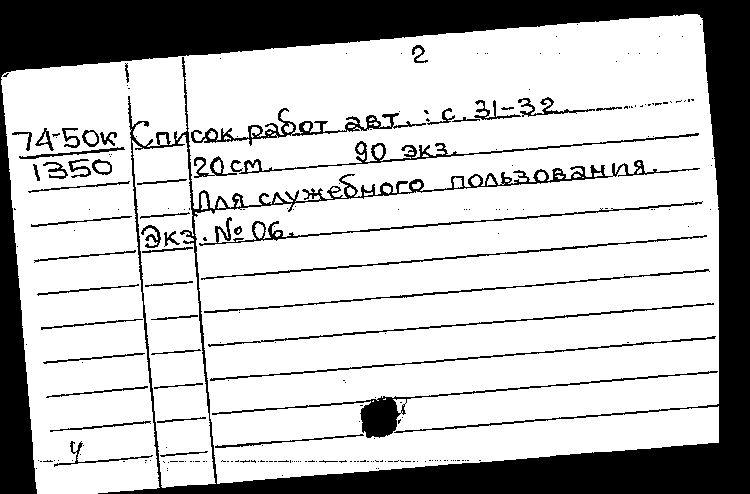 2
74-50к Список работ авт. : с. 31-32.
1350 20 см. 90 экз.
Для служебного пользования.
Экз. № 06.
ч